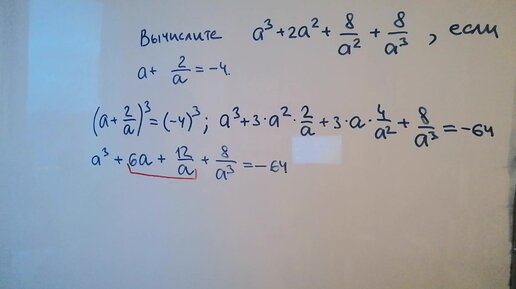 Вычислите a³+2a²+8/a²+8/a³, если
a+2/a=-4.
(a+2/a)³=(-4)³; a³+3·a²·2/a+3·a·4/a²+8/a³=-64
a³+6a+12/a+8/a³=-64